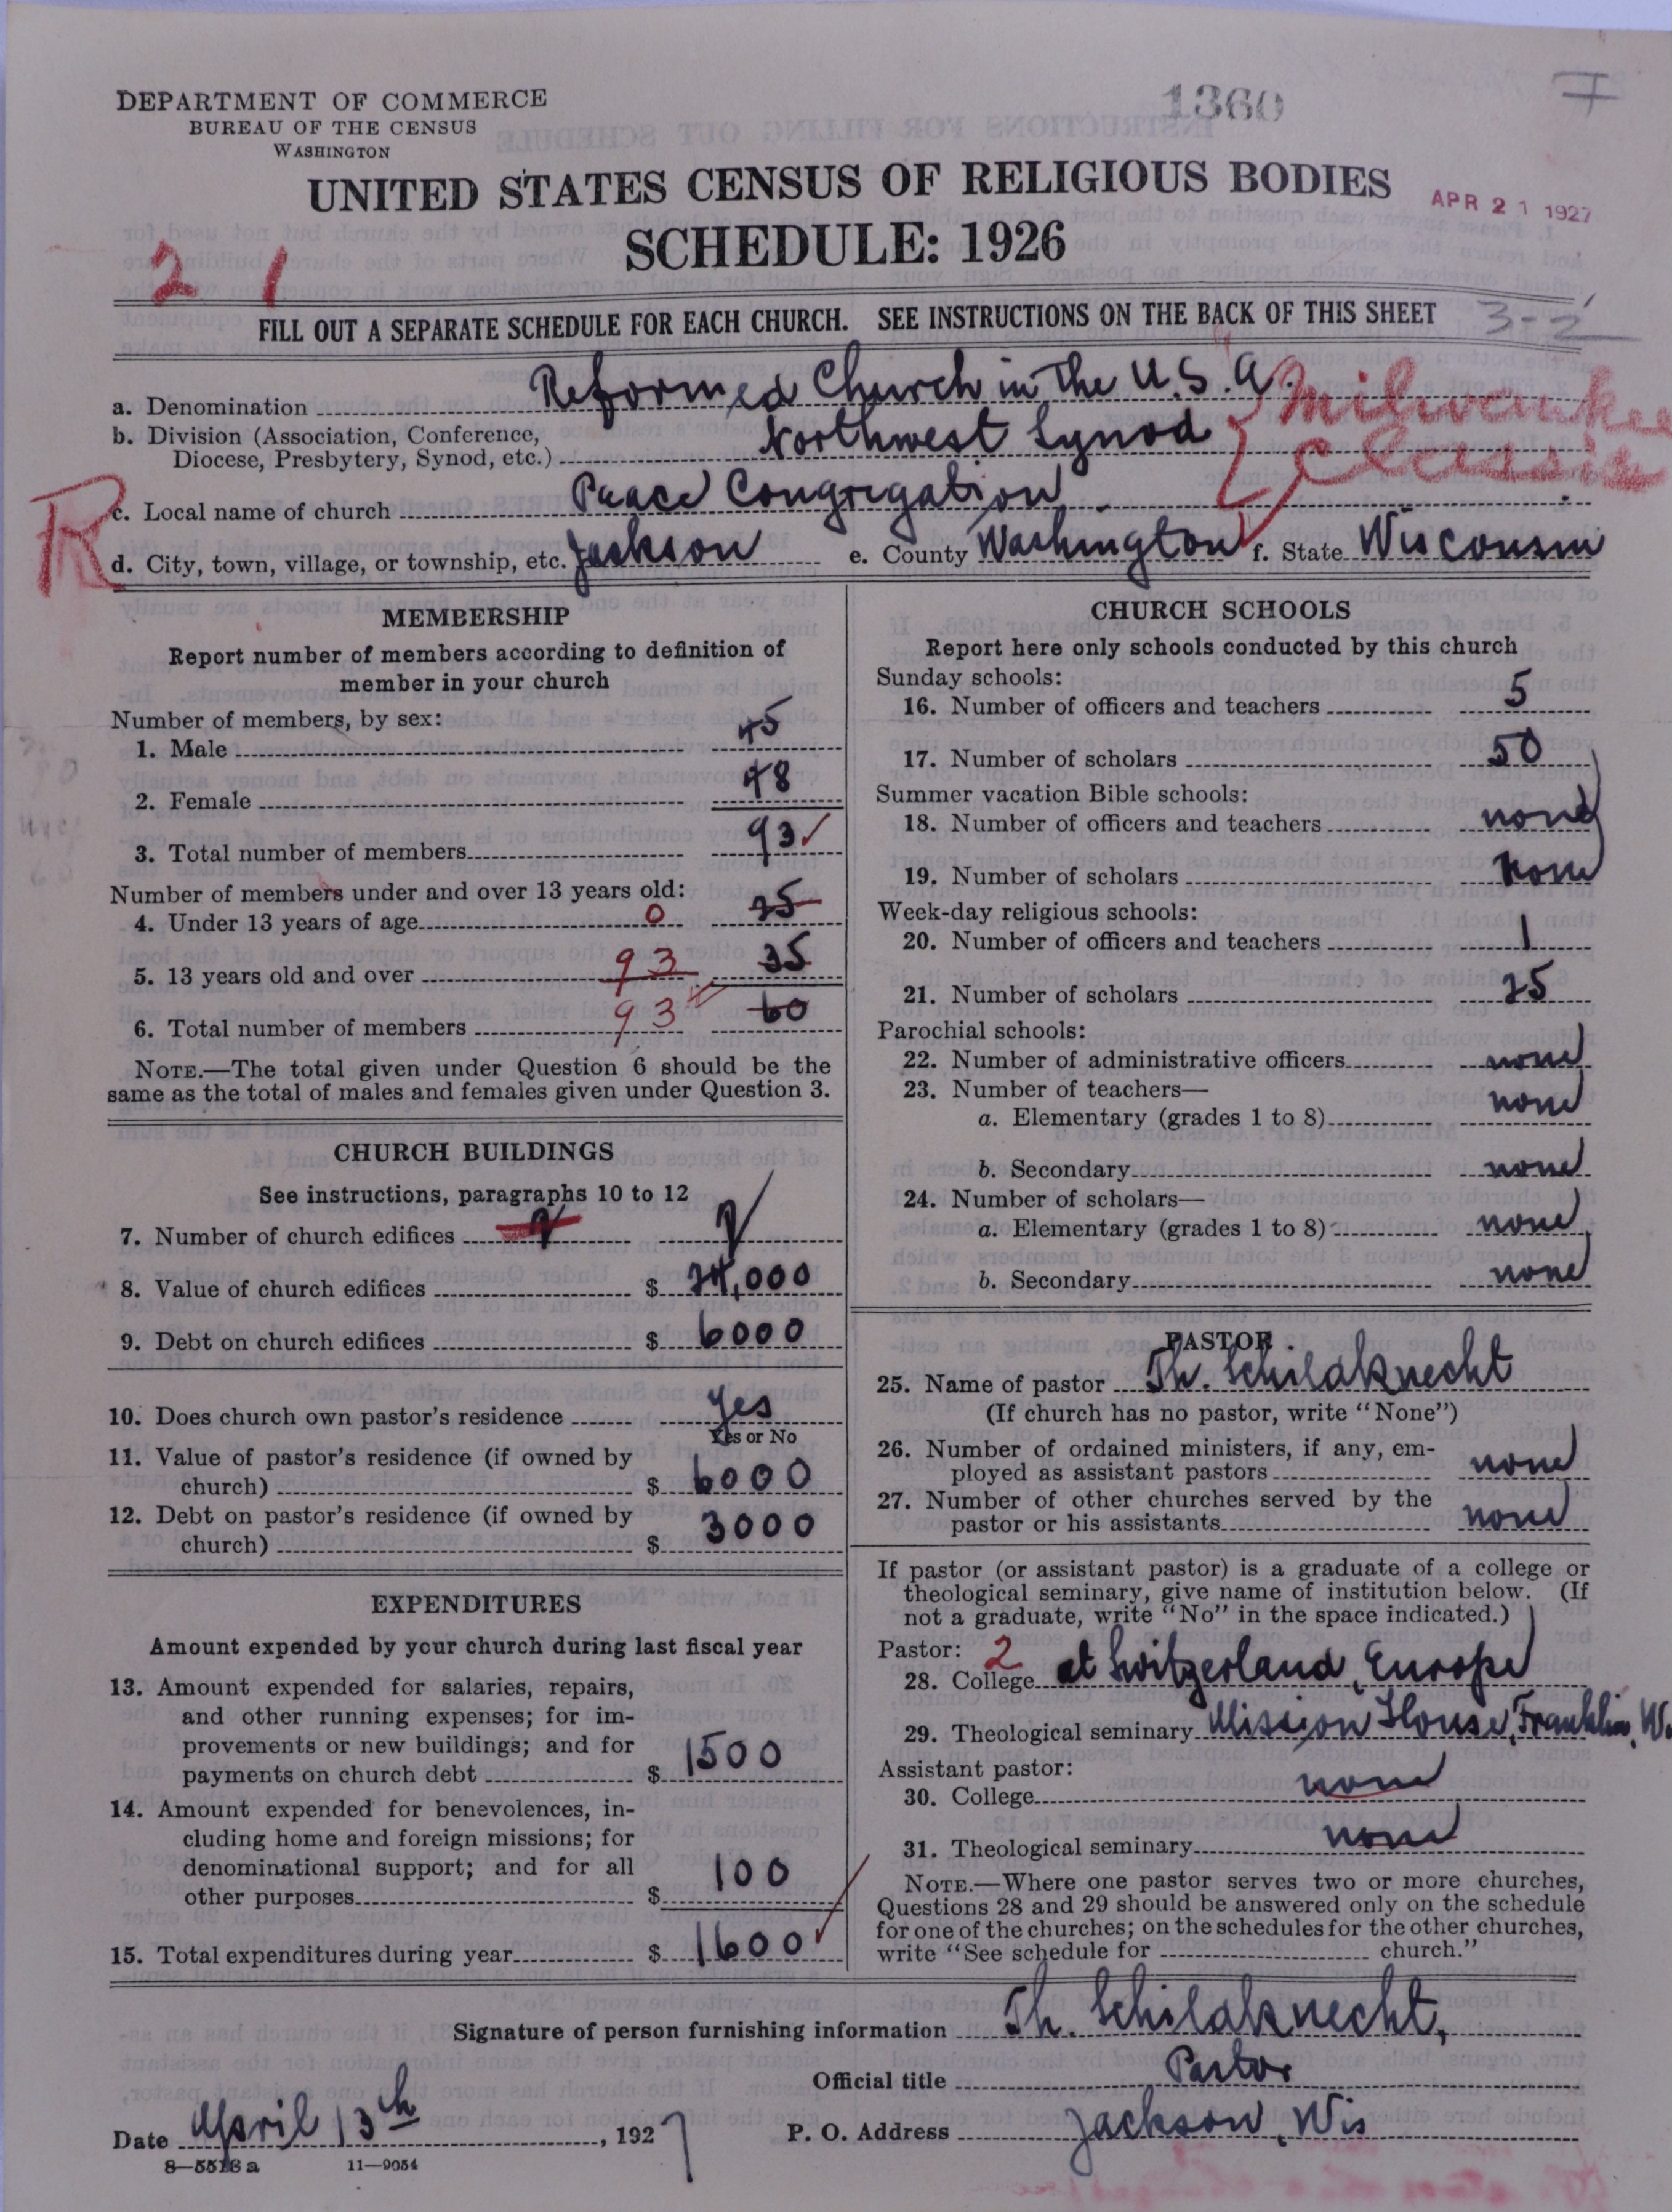 DEPARTMENT OF COMMERCE
BUREAU OF THE CENSUS
WASHINGTON
1360
UNITED STATES CENSUS OF RELIGIOUS BODIES
APR 21 1927
SCHEDULE: 1926
2 1
FILL OUT A SEPARATE SCHEDULE FOR EACH CHURCH. SEE INSTRUCTIONS ON THE BACK OF THIS SHEET
3-2
a. Denomination Reformed Church in the U.S.A.
b. Division (Association, Conference, Diocese, Presbytery, Synod, etc.) Northwest Synod
Milwaukee Classis
R
c. Local name of church Peace Congregation
d. City, town, village, or township, etc. Jackson e. County Washington f. State Wisconsin
MEMBERSHIP
Report number of members according to definition of
member in your church
Number of members, by sex:
1. Male 45
2. Female 48
3. Total number of members 93
Number of members under and over 13 years old:
4. Under 13 years of age 0 25
5. 13 years old and over 93 35
6. Total number of members 93 60
NOTE.—The total given under Question 6 should be the
same as the total of males and females given under Question 3.
CHURCH BUILDINGS
See instructions, paragraphs 10 to 12
7. Number of church edifices
8. Value of church edifices $ 24,000
9. Debt on church edifices $ 6000
10. Does church own pastor's residence yes
Yes or No
11. Value of pastor's residence (if owned by
church) $ 6000
12. Debt on pastor's residence (if owned by
church) $ 3000
EXPENDITURES
Amount expended by your church during last fiscal year
13. Amount expended for salaries, repairs,
and other running expenses; for im-
provements or new buildings; and for
payments on church debt $ 1500
14. Amount expended for benevolences, in-
cluding home and foreign missions; for
denominational support; and for all
other purposes $ 100
15. Total expenditures during year $ 1600
CHURCH SCHOOLS
Report here only schools conducted by this church
Sunday schools:
16. Number of officers and teachers 5
17. Number of scholars 50
Summer vacation Bible schools:
18. Number of officers and teachers none
19. Number of scholars none
Week-day religious schools:
20. Number of officers and teachers 1
21. Number of scholars 25
Parochial schools:
22. Number of administrative officers none
23. Number of teachers—
a. Elementary (grades 1 to 8) none
b. Secondary none
24. Number of scholars—
a. Elementary (grades 1 to 8) none
b. Secondary none
PASTOR
25. Name of pastor Th. Schildknecht
(If church has no pastor, write "None")
26. Number of ordained ministers, if any, em-
ployed as assistant pastors none
27. Number of other churches served by the
pastor or his assistants none
If pastor (or assistant pastor) is a graduate of a college or
theological seminary, give name of institution below. (If
not a graduate, write "No" in the space indicated.)
Pastor: 2
28. College at Switzerland, Europe
29. Theological seminary Mission House, Franklin, W.
Assistant pastor:
30. College none
31. Theological seminary none
NOTE.—Where one pastor serves two or more churches,
Questions 28 and 29 should be answered only on the schedule
for one of the churches; on the schedules for the other churches,
write "See schedule for church."
Signature of person furnishing information Th. Schildknecht,
Official title Pastor
Date April 13th, 1927 P. O. Address Jackson, Wis
8—5513 a 11—9054